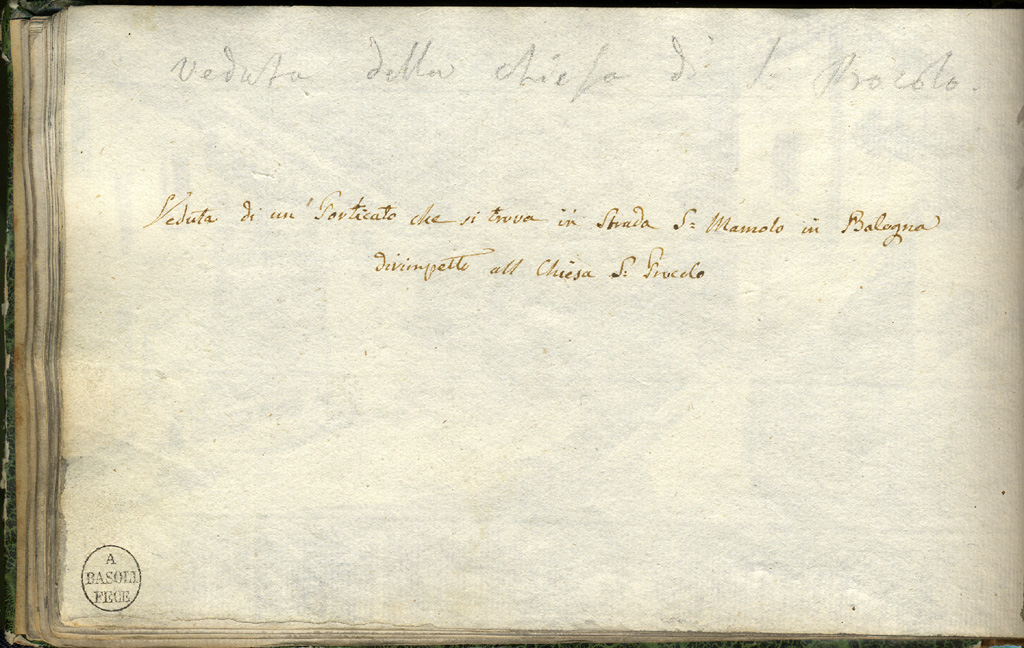 veduta della chiesa di S. Procolo.
Veduta di un' Porticato che si trova in Strada S: Mamolo in Balogna
dirimpetto all Chiesa S: Procolo
A
BASOLI
FECE